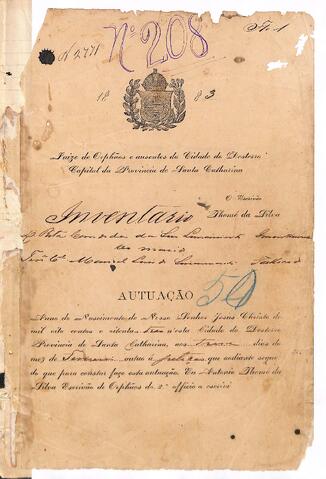 Nº 208
Fl. 1
N 2771
18 83
Juizo de Orphãos e ausentes da Cidade do Desterro
Capital da Provincia de Santa Catharina
O Escrivão
Thomé da Silva
Inventario
Manoel Luis do Livramento
AUTUAÇÃO
50
Anno do Nascimento de Nosso Senhor Jesus Christo de
mil oito centos e oitenta e tres n'esta Cidade do Desterro
Provincia de Santa Catharina, aos dias do
mez de autuo a petição que adiante segue
do que para constar faço esta autuação. Eu Antonio Thomé da
Silva Escrivão de Orphãos do 2º officio o escrevi